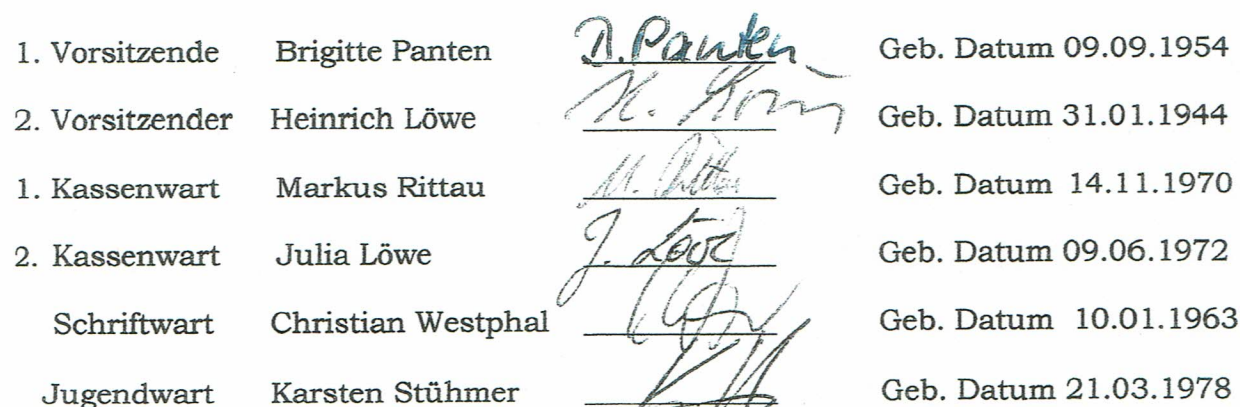 1. Vorsitzende Brigitte Panten B. Panten Geb. Datum 09.09.1954
2. Vorsitzender Heinrich Löwe H. Geb. Datum 31.01.1944
1. Kassenwart Markus Rittau M. Rittau Geb. Datum 14.11.1970
2. Kassenwart Julia Löwe J. Löwe Geb. Datum 09.06.1972
Schriftwart Christian Westphal Geb. Datum 10.01.1963
Jugendwart Karsten Stühmer Geb. Datum 21.03.1978